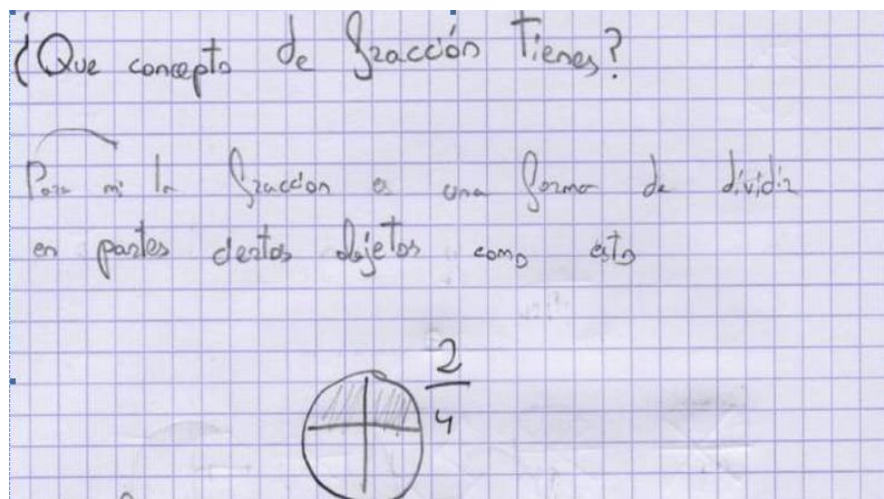 ¿Que concepto de fracción Tienes?
Para mi la fraccion e una forma de dividir
en partes ciertos objetos como esto
2
4